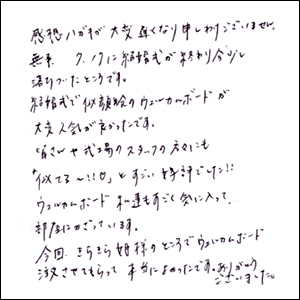 感想ハガキが大変遅くなり申しわけございません。
無事 9.17に結婚式が終わり今少し
落ちついたところです。
結婚式で似顔絵のウェルカムボードが
大変人気が良かったです。
皆さんや式場のスタッフの方々にも
「似てる〜!!」とすごい好評でした!!
ウェルカムボード私達もすごく気に入って、
部屋にかざっています。
今回、きらきら姫様のところでウェルカムボード
注文させてもらって本当によかったです。ありがとう
ございました。